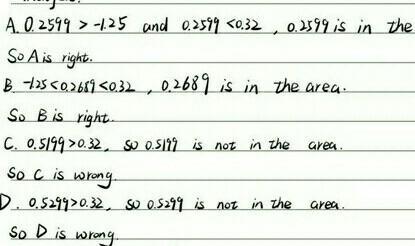 A. 0.2599 > -1.25 and 0.2599 < 0.32 , 0.2599 is in the
So A is right.
B. -1.25 < 0.2689 < 0.32 , 0.2689 is in the area.
So B is right.
C. 0.5199 > 0.32, so 0.5199 is not in the area.
So C is wrong.
D. 0.5299 > 0.32, so 0.5299 is not in the area.
So D is wrong.